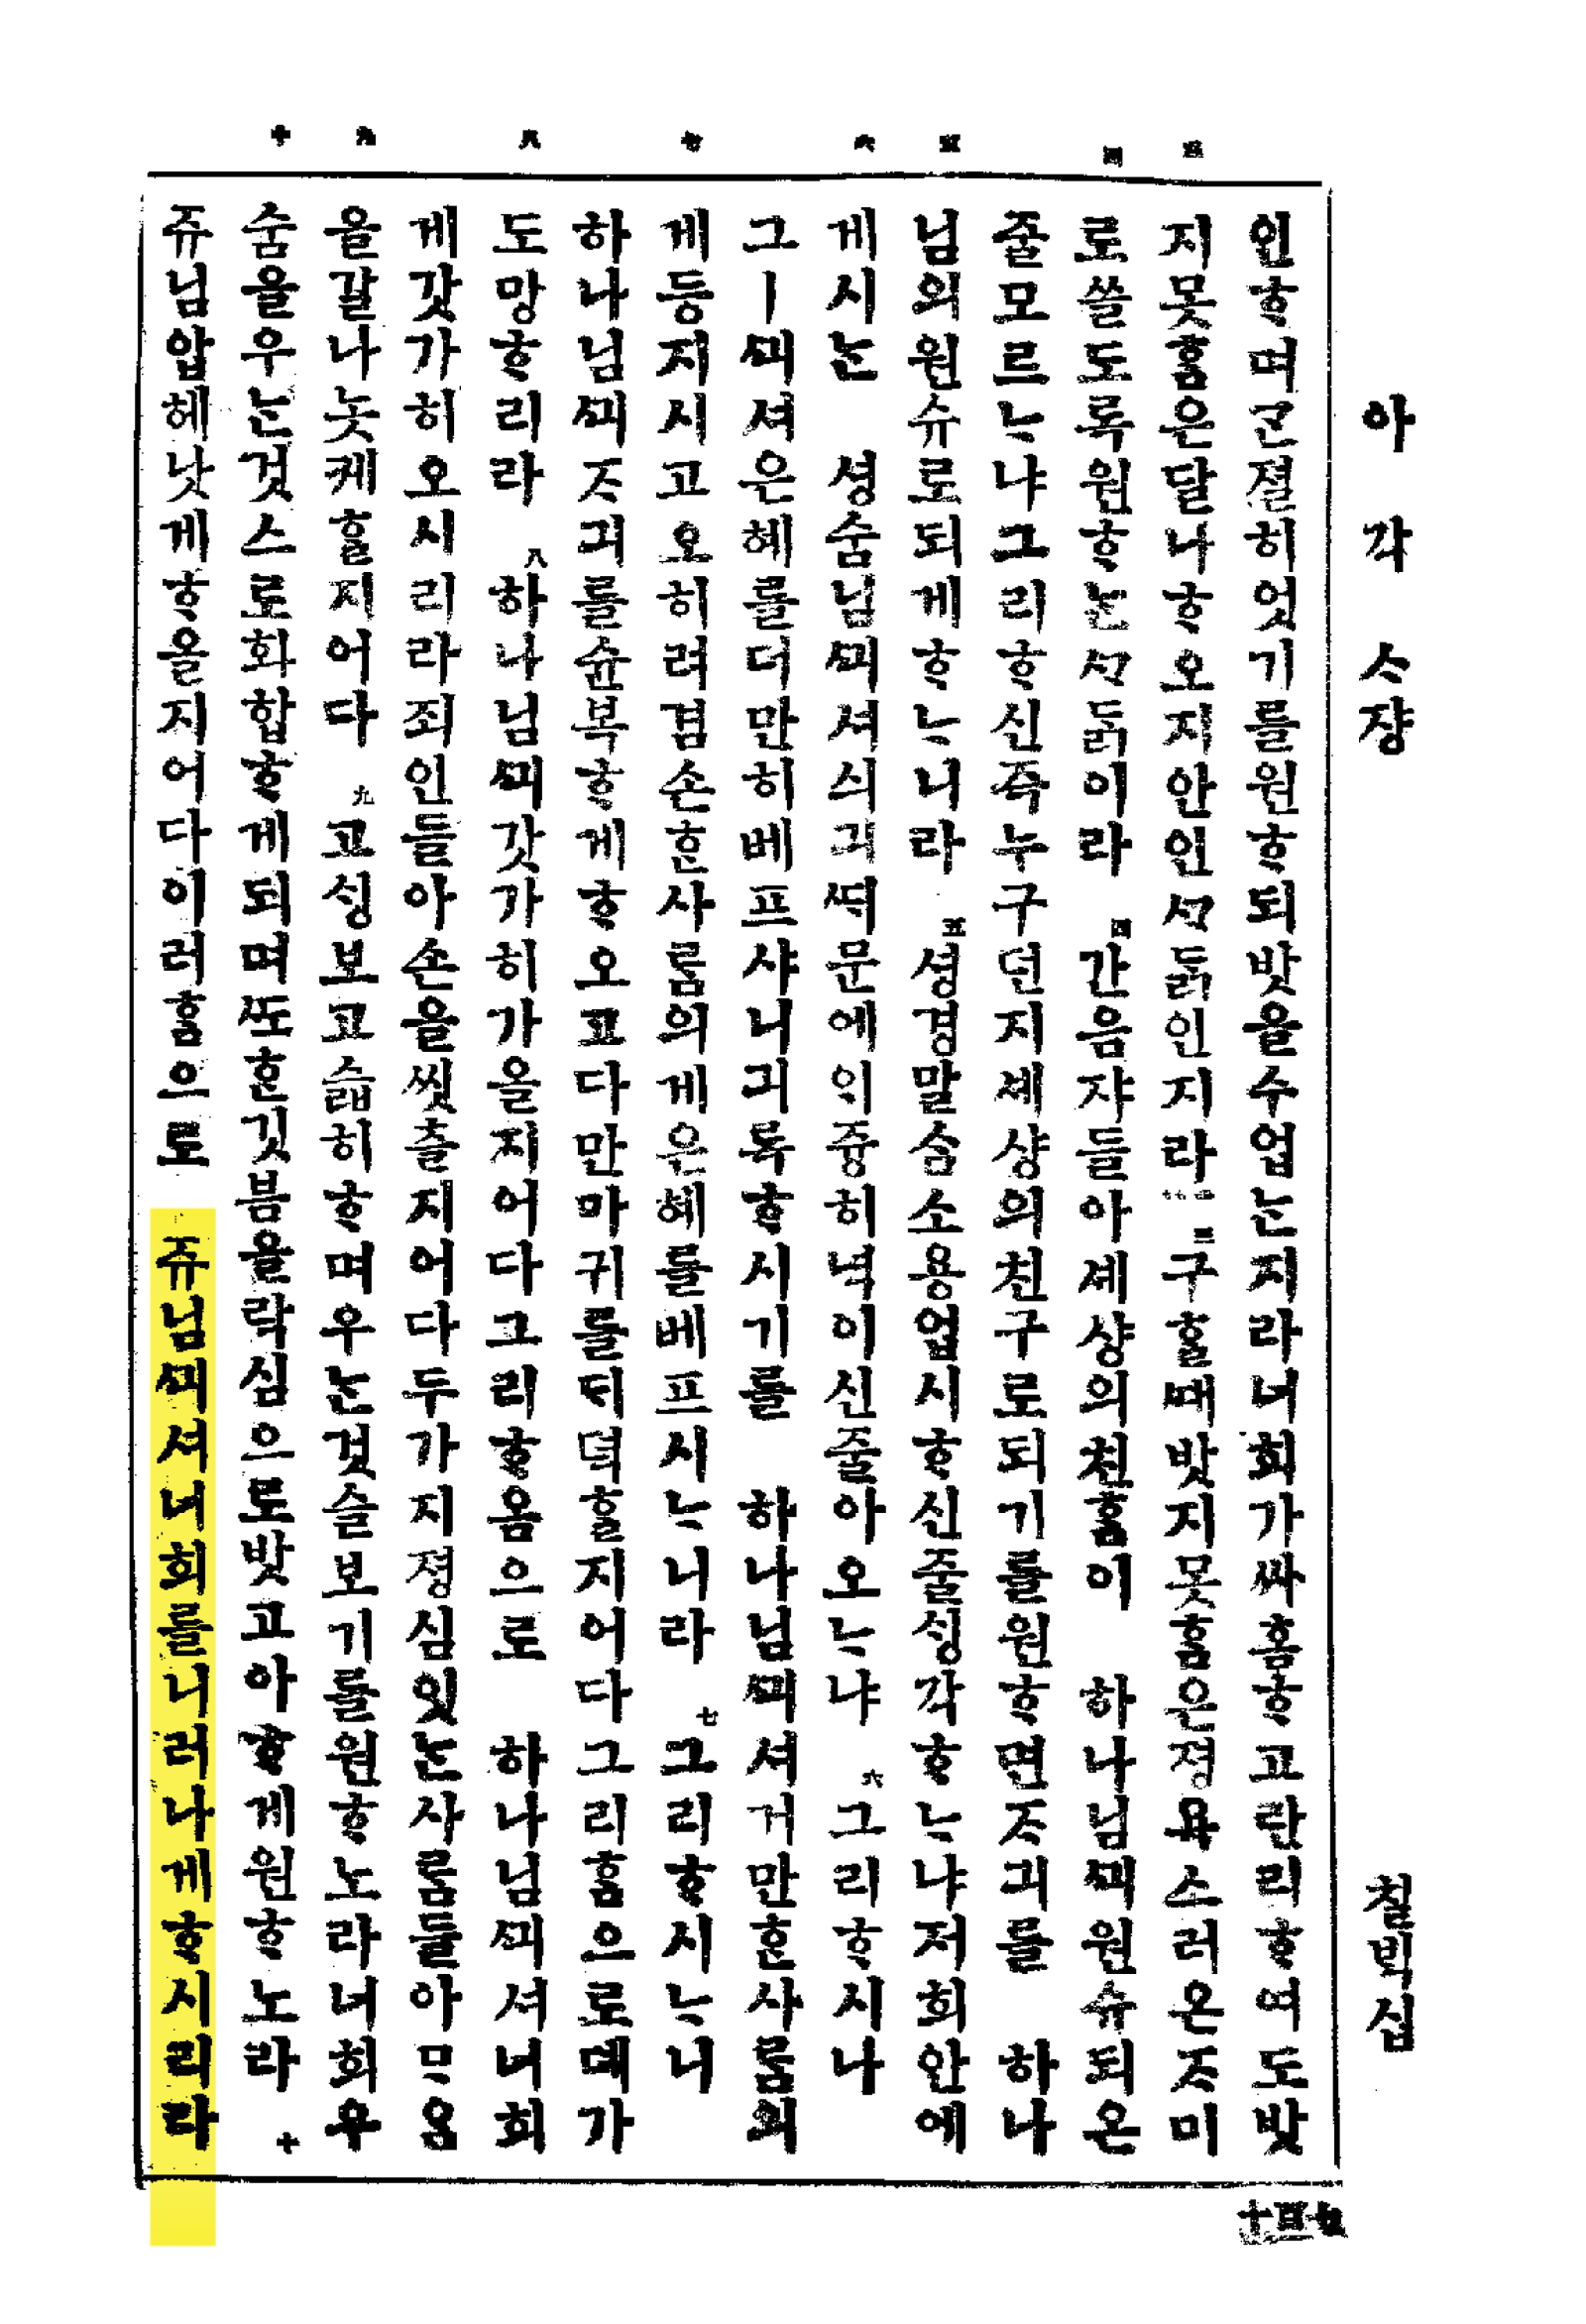 아각 ᄉᆞ쟝 칠ᄇᆡᆨ십
三 四 五 六 七 八 九 十
인ᄒᆞ며ᄀᆞᆫ졀히엇기를원ᄒᆞ되밧을수업ᄂᆞᆫ지라너희가싸홈ᄒᆞ고란리ᄒᆞ여도밧
지못홈은달나ᄒᆞ오지안인ᄭᆞᄃᆞᆰ인지라 三 구ᄒᆞᆯ때밧지못홈은졍욕스러온ᄌᆞ미
로쓸도록원ᄒᆞᄂᆞᆫᄭᆞᄃᆞᆰ이라 四 간음쟈들아셰샹의친홈이 하나님ᄭᅴ원슈되온
줄모르ᄂᆞ냐그리ᄒᆞ신즉누구던지셰샹의친구로되기를원ᄒᆞ면ᄌᆞ긔를 하나
님의원슈로되게ᄒᆞᄂᆞ니라 五 셩경말ᄉᆞᆷ소용업시ᄒᆞ신줄ᄉᆡᆼ각ᄒᆞᄂᆞ냐저희안에
게시ᄂᆞᆫ 셩숨님ᄭᅴ셔싀긔ᄯᆡ문에ᄋᆡ즁히녁이신줄아오ᄂᆞ냐 六 그리ᄒᆞ시나
그ㅣᄭᅴ셔은혜를더만히베프샤니긔록ᄒᆞ시기를 하나님ᄭᅴ셔거만ᄒᆞᆫ사ᄅᆞᆷ의
게등지시고오히려겸손ᄒᆞᆫ사ᄅᆞᆷ의게은혜를베프시ᄂᆞ니라 七 그리ᄒᆞ시ᄂᆞ니
하나님ᄭᅴᄌᆞ긔를슌복ᄒᆞ게ᄒᆞ오고다만마귀를ᄃᆡ뎍ᄒᆞᆯ지어다그리홈으로뎨가
도망ᄒᆞ리라 八 하나님ᄭᅴ갓가히가올지어다그리ᄒᆞ옴으로 하나님ᄭᅴ셔너희
게갓가히오시리라죄인들아손을씻츨지어다두가지졍심잇ᄂᆞᆫ사ᄅᆞᆷ들아ᄆᆞ음
을갈나놋케ᄒᆞᆯ지어다 九 고ᄉᆡᆼ보고슯히ᄒᆞ며우ᄂᆞᆫ것슬보기를원ᄒᆞ노라너희우
숨을우ᄂᆞᆫ것스로화합ᄒᆞ게되며ᄯᅩᄒᆞᆫ깃븜을락심으로밧고아ᄒᆞ게원ᄒᆞ노라 十
쥬님압헤낫게ᄒᆞ올지어다이러홈으로 쥬님ᄭᅴ셔너희를니러나게ᄒᆞ시리라